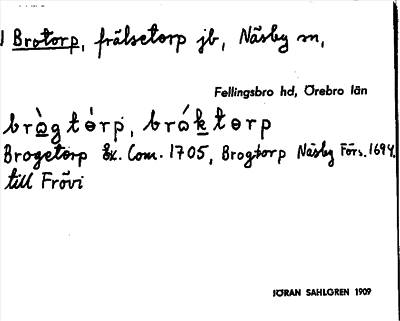 Brotorp, frälsetorp jb, Näsby sn,
Fellingsbro hd, Örebro län
brògtòrp, bróktorp
Brogetorp Ex. Com. 1705, Brogtorp Näsby Förs. 1694.
till Frövi
JÖRAN SAHLGREN 1909